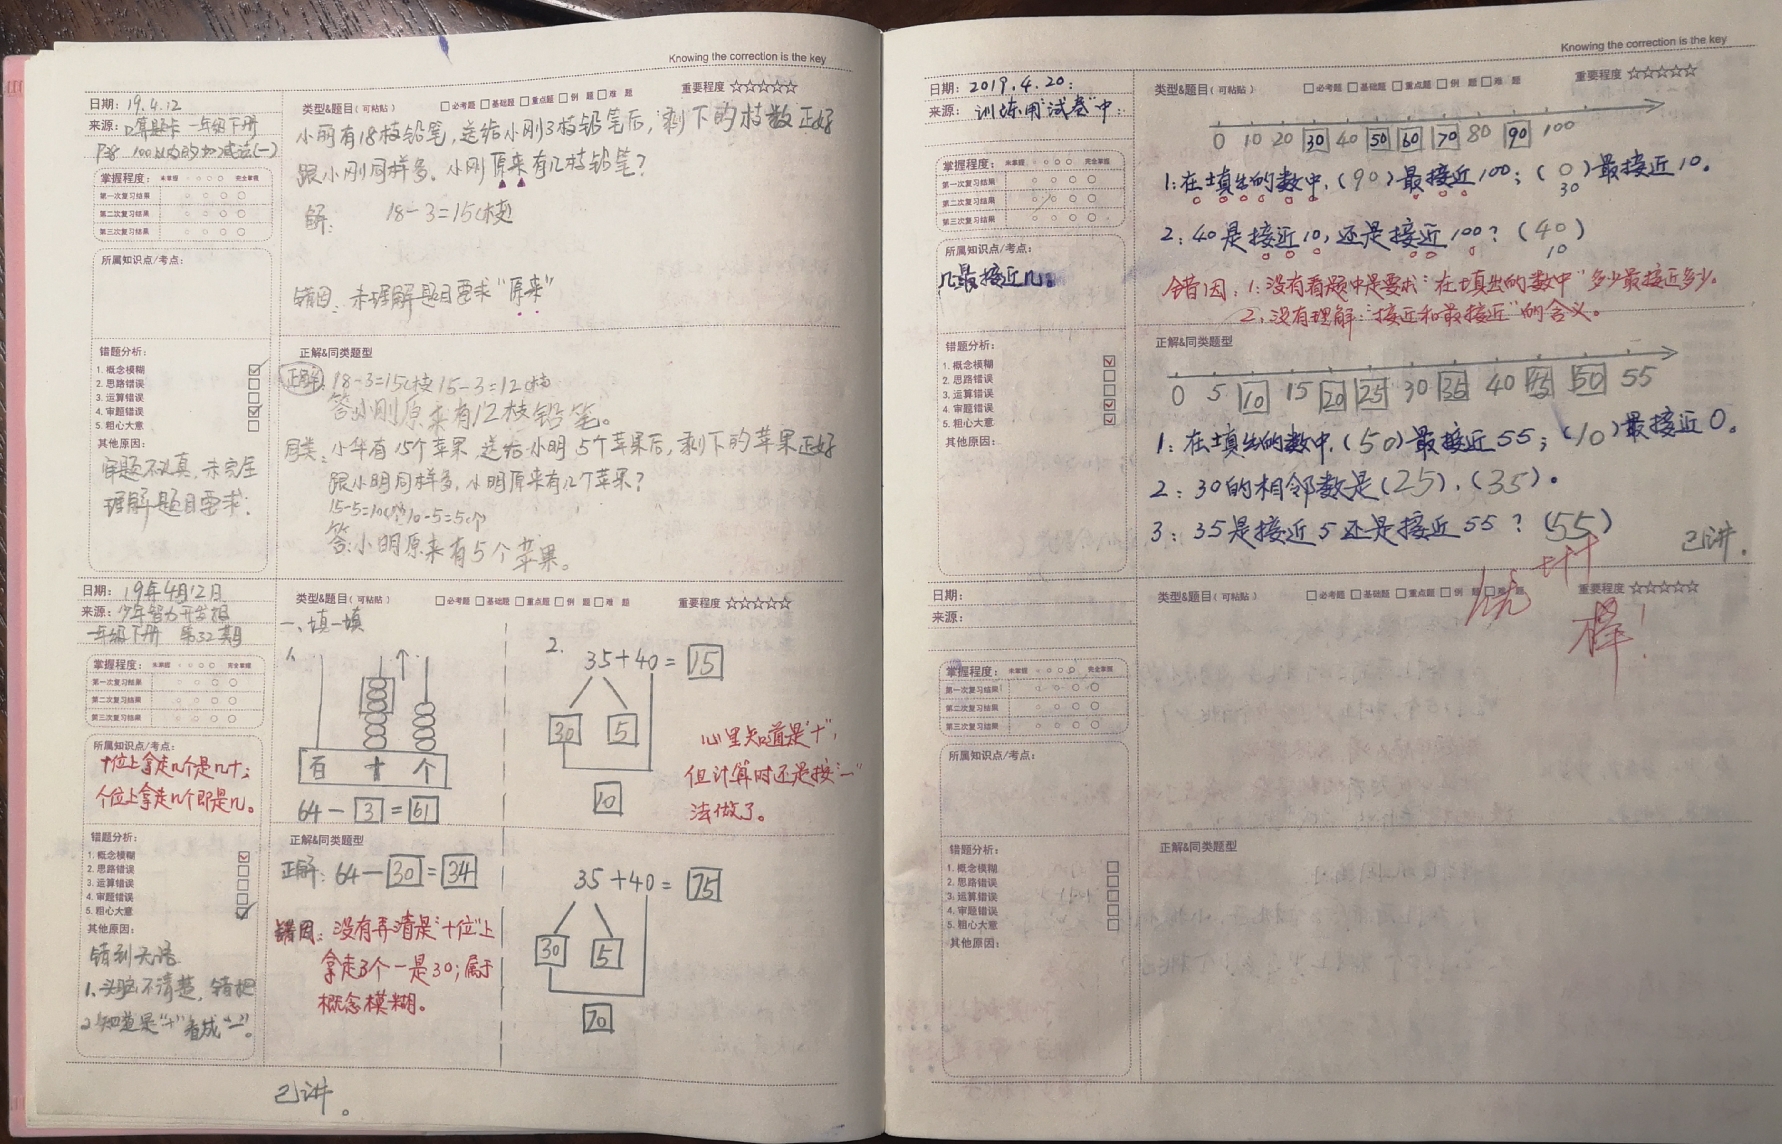 Knowing the correction is the key
日期：19.4.12
类型&题目（可粘贴）
□必考题 □基础题 □重点题 □例 题 □难 题
重要程度 ☆☆☆☆☆
来源：口算题卡 一年级下册
P38 100以内的加减法(一)
小丽有18枝铅笔，送给小刚3枝铅笔后，剩下的枝数正好
跟小刚同样多。小刚原来有几枝铅笔？
解： 18-3=15(枝)
错因：未理解题目要求"原来"
掌握程度： 未掌握 完全掌握
第一次复习结果
第二次复习结果
第三次复习结果
所属知识点/考点：
错题分析：
1. 概念模糊
2. 思路错误
3. 运算错误
4. 审题错误
5. 粗心大意
其他原因：
审题不认真，未完全
理解题目要求：
正解&同类题型
正解：18-3=15(枝) 15-3=12(枝)
答：小刚原来有12枝铅笔。
同类：小华有15个苹果，送给小明5个苹果后，剩下的苹果正好
跟小明同样多，小明原来有几个苹果？
15-5=10(个) 10-5=5(个)
答：小明原来有5个苹果。
日期：19年4月12日
类型&题目（可粘贴）
□必考题 □基础题 □重点题 □例 题 □难 题
重要程度 ☆☆☆☆☆
来源：少年智力开发报
一年级下册 第32期
一、填一填
1、
百 十 个
64-3=61
2.
35+40=15
30 5
10
心里知道是"+"，
但计算时还是按"一"
法做了。
掌握程度： 未掌握 完全掌握
第一次复习结果
第二次复习结果
第三次复习结果
所属知识点/考点：
十位上拿走几个是几十；
个位上拿走几个即是几。
错题分析：
1. 概念模糊
2. 思路错误
3. 运算错误
4. 审题错误
5. 粗心大意
其他原因：
错到无语
1、头脑不清楚，错把
2、知道是"+"看成"一"。
正解&同类题型
正解：64-30=34
错因：没有弄清是"十位"上
拿走3个一是30；属于
概念模糊。
35+40=75
30 5
70
已讲。
Knowing the correction is the key
日期：2019.4.20：
类型&题目（可粘贴）
□必考题 □基础题 □重点题 □例 题 □难 题
重要程度 ☆☆☆☆☆
来源：训练用"试卷"中：
0 10 20 30 40 50 60 70 80 90 100
1：在填出的数中，(90)最接近100；(0)最接近10。
30
2：40是接近10，还是接近100？(40)
10
错因：1：没有看题中是要求："在填出的数中"多少最接近多少。
2：没有理解："接近和最接近"的含义。
掌握程度： 未掌握 完全掌握
第一次复习结果
第二次复习结果
第三次复习结果
所属知识点/考点：
几最接近几。
错题分析：
1. 概念模糊
2. 思路错误
3. 运算错误
4. 审题错误
5. 粗心大意
其他原因：
正解&同类题型
0 5 10 15 20 25 30 35 40 45 50 55
1：在填出的数中，(50)最接近55；(10)最接近0。
2：30的相邻数是(25)、(35)。
3：35是接近5还是接近55？(55)
已讲。
日期：
类型&题目（可粘贴）
□必考题 □基础题 □重点题 □例 题 □难 题
重要程度 ☆☆☆☆☆
来源：
掌握程度： 未掌握 完全掌握
第一次复习结果
第二次复习结果
第三次复习结果
所属知识点/考点：
错题分析：
1. 概念模糊
2. 思路错误
3. 运算错误
4. 审题错误
5. 粗心大意
其他原因：
正解&同类题型